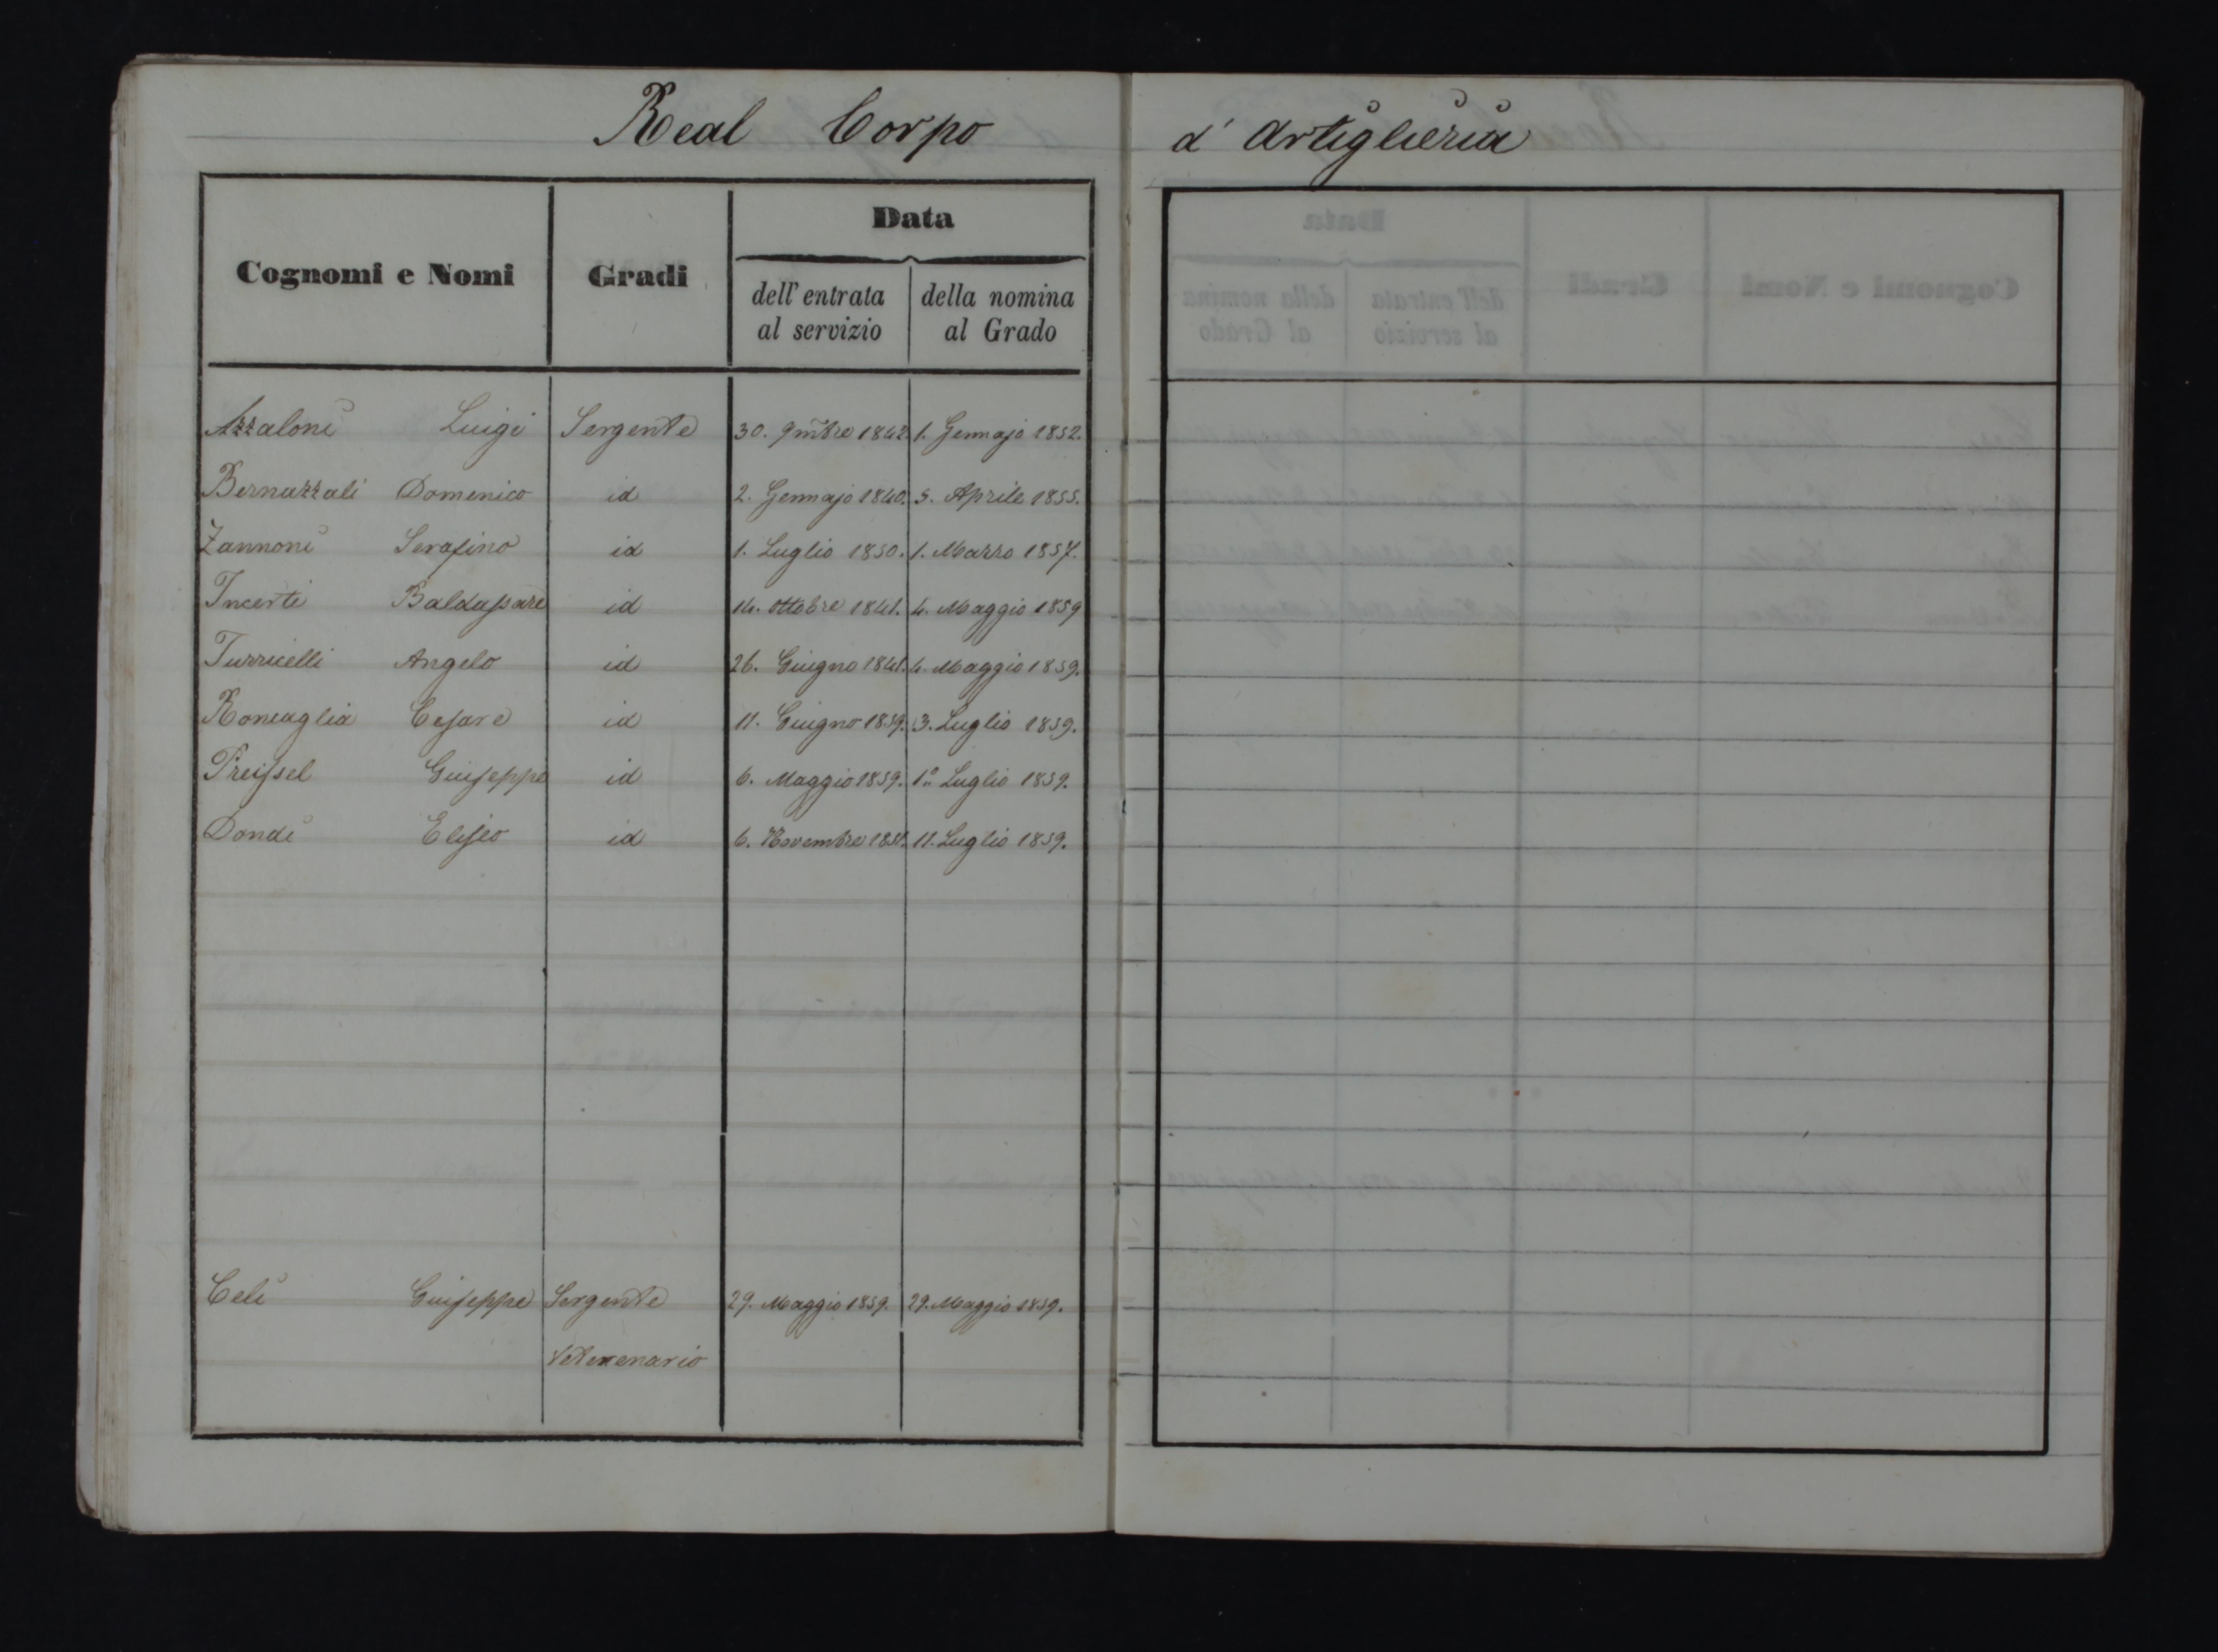 Real Corpo d' Artiglieria
Data
Cognomi e Nomi Gradi
dell' entrata al servizio della nomina al Grado
Azzaloni Luigi Sergente 30. 9mbre 1842. 1. Gennajo 1852.
Bernazzali Domenico id 2. Gennajo 1840. 5. Aprile 1855.
Zannoni Serafino id 1. Luglio 1850. 1. Marzo 1857.
Incerti Baldassare id 14. Ottobre 1841. 4. Maggio 1859
Turricelli Angelo id 26. Giugno 1841. 4. Maggio 1859.
Roncaglia Cesare id 11. Giugno 1859. 3. Luglio 1859.
Preissel Giuseppe id 6. Maggio 1859. 1o Luglio 1859.
Dondi Eliseo id 6. Novembre 11. Luglio 1859.
Celi Giuseppe Sergente 29. Maggio 1859. 29. Maggio 1859.
Veterenario